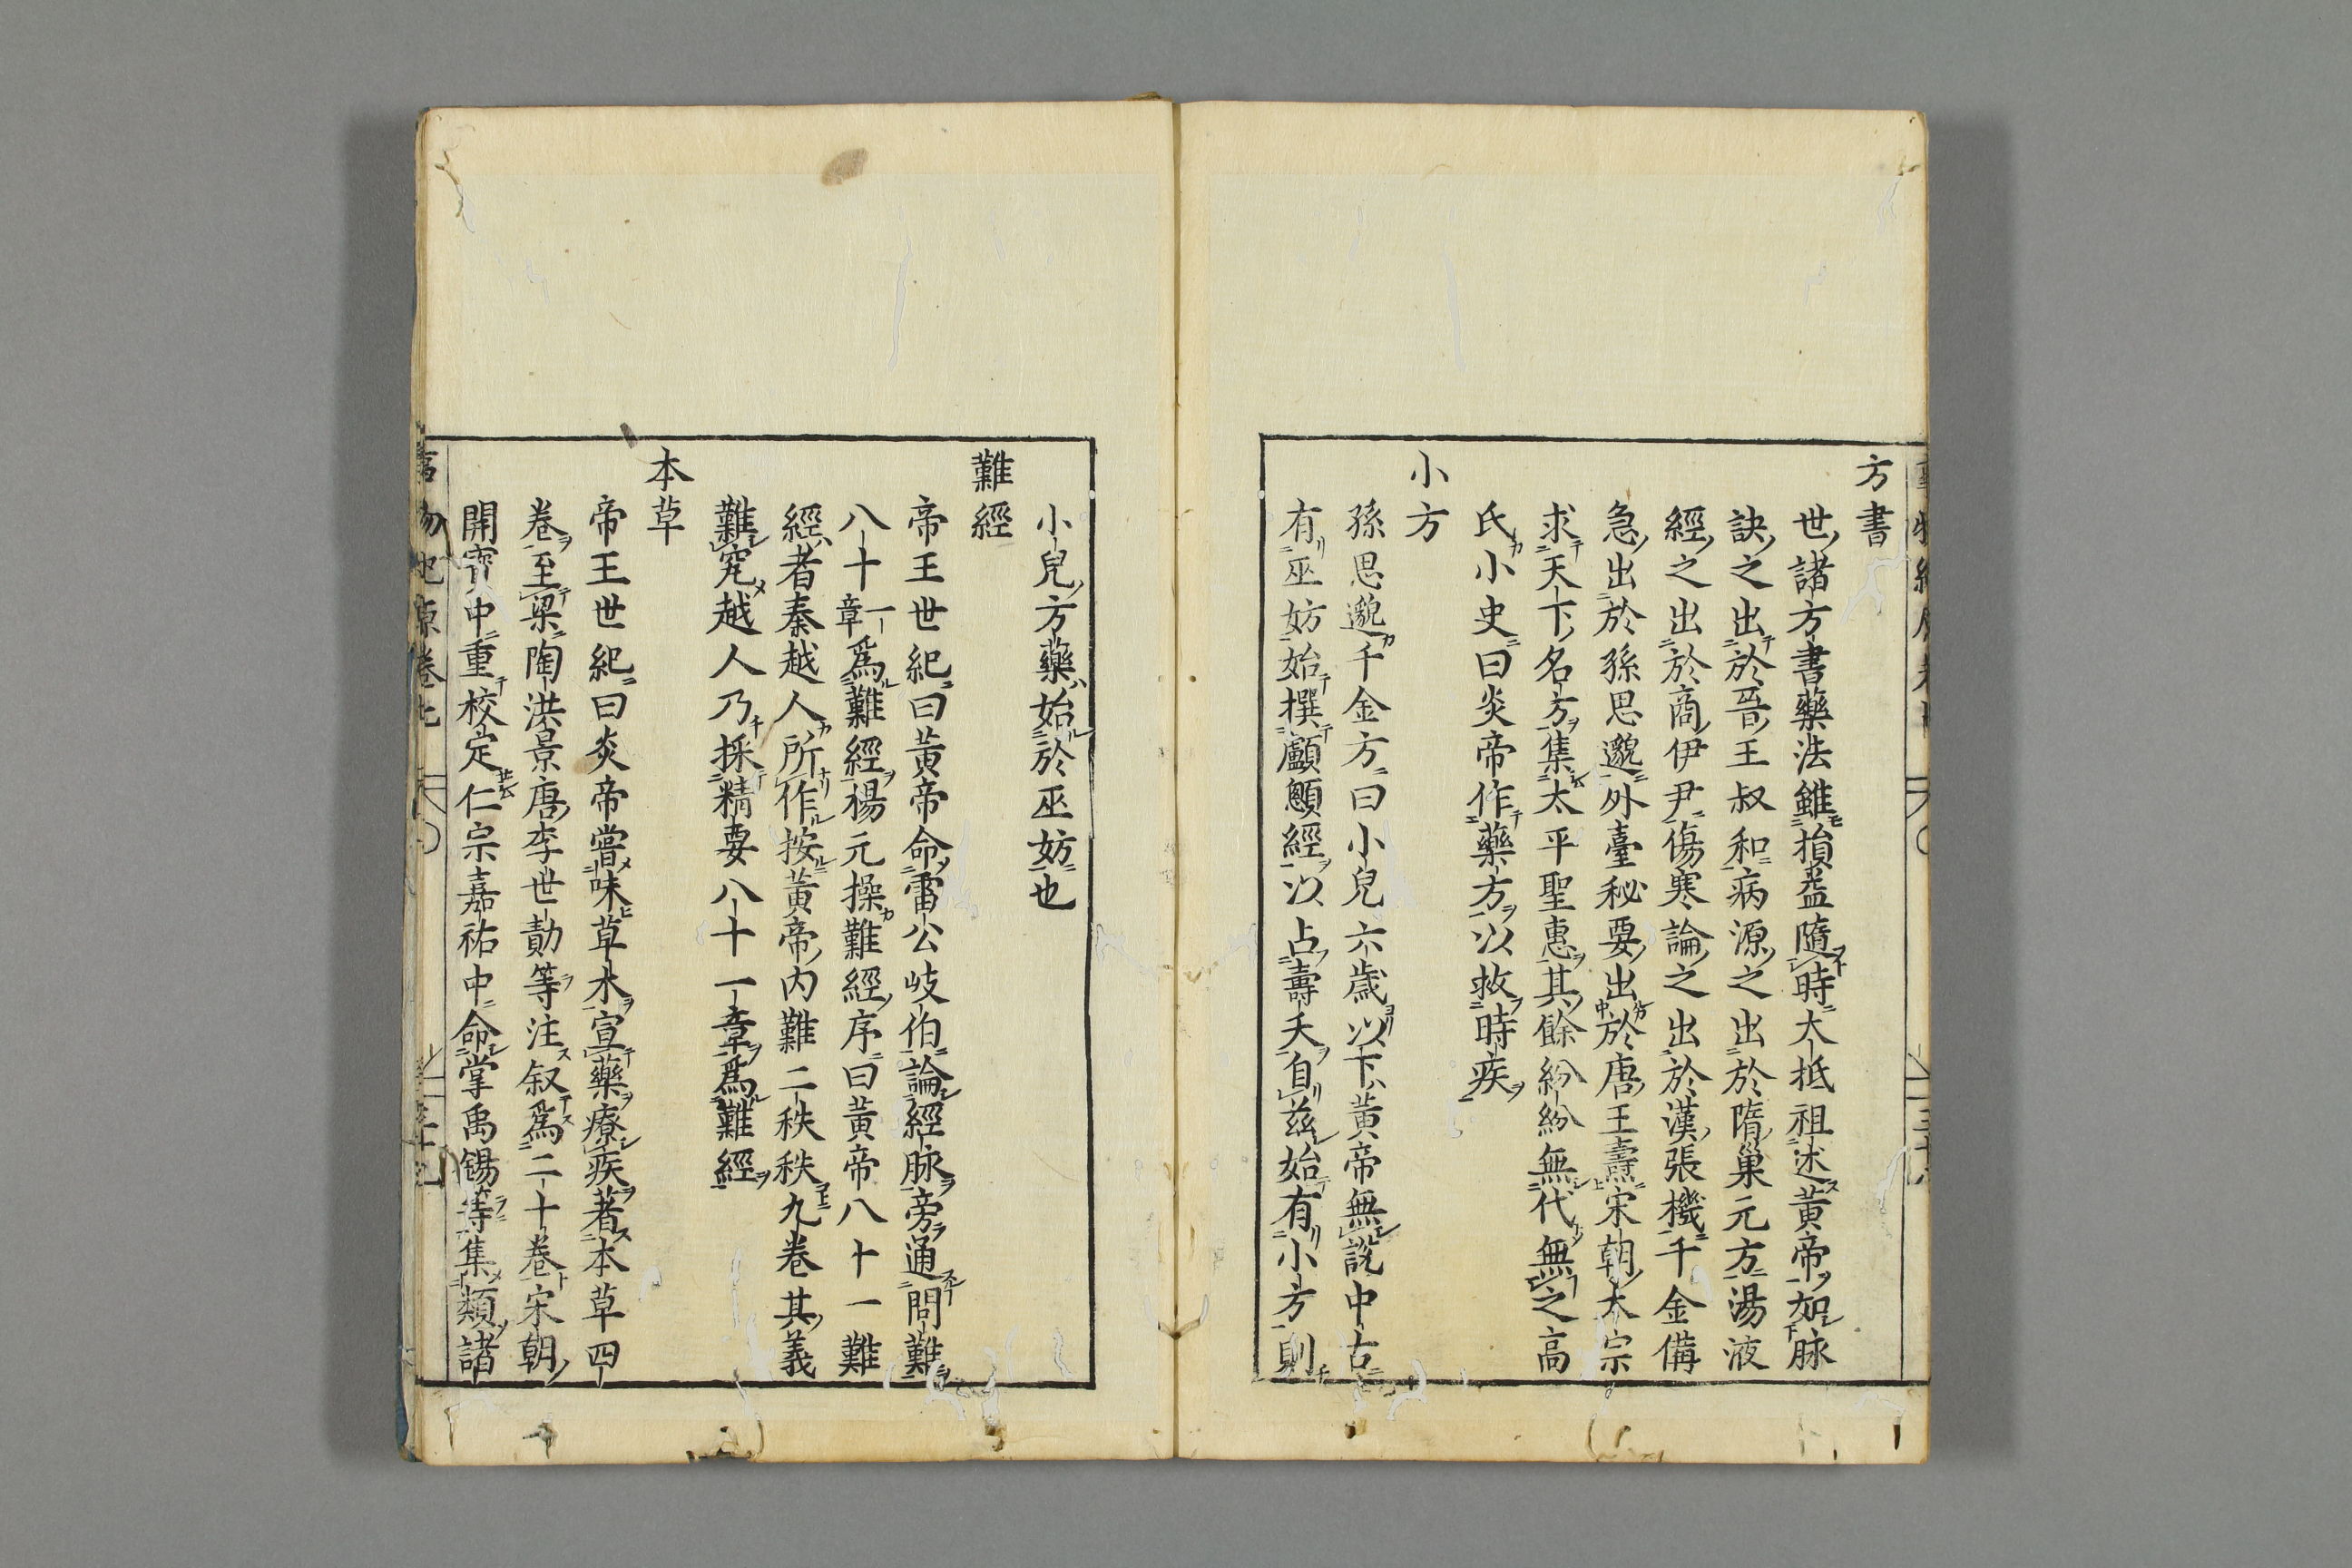 方書
世諸方書藥法雖損益隨時大抵祖述黄帝如脉
訣之出於晉王叔和病源之出於隋巢元方湯液
經之出於商伊尹傷寒論之出於漢張機千金備
急出於孫思邈外臺秘要出於唐王燾宋朝太宗
求天下名方集太平聖惠其餘紛紛無代無之高
氏小史曰炎帝作藥方以救時疾
小方
孫思邈千金方曰小兒六歳以下黄帝無説中古
有巫妨始撰顱顖經以占壽夭自兹始有小方則
小兒方藥始於巫妨也
難經
帝王世紀曰黄帝命雷公岐伯論經脉旁通問難
八十一章爲難經楊元操難經序曰黄帝八十一難
經者秦越人所作按黄帝内難二秩秩九卷其義
難究越人乃採精要八十一章爲難經
本草
帝王世紀曰炎帝嘗味草木宣藥療疾著本草四
卷至梁陶洪景唐李世勣等注叙爲二十卷宋朝
開寳中重校定仁宗嘉祐中命掌禹錫等集類諸